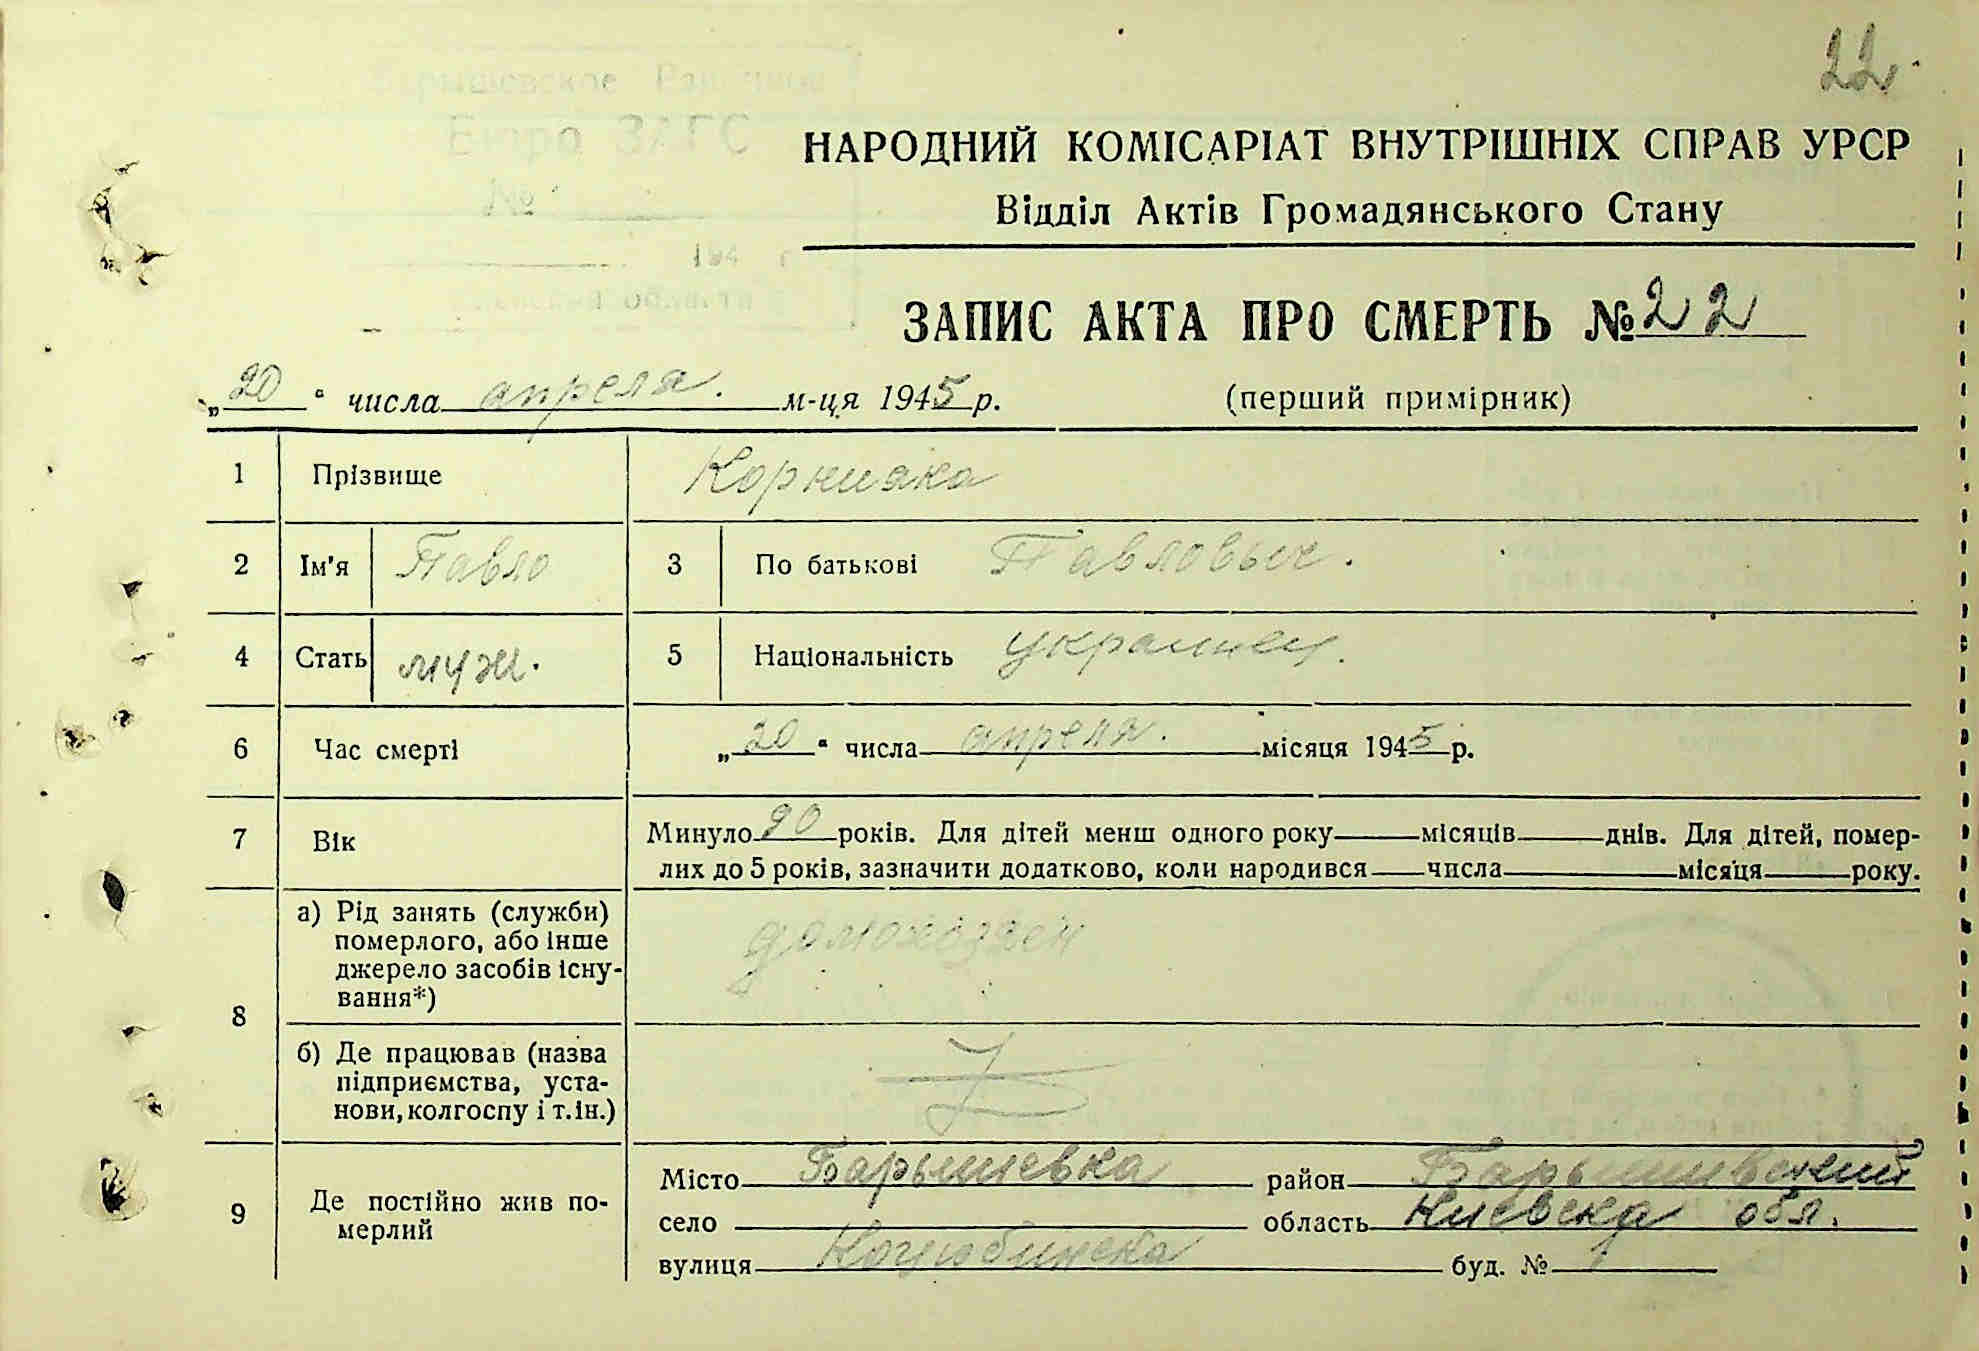 22.
НАРОДНИЙ КОМІСАРІАТ ВНУТРІШНІХ СПРАВ УРСР
Відділ Актів Громадянського Стану
ЗАПИС АКТА ПРО СМЕРТЬ № 22
„20“ числа апреля. м-ця 1945 р. (перший примірник)
1 Прізвище Корнияка
2 Ім'я Павло 3 По батькові Павловыч.
4 Стать муж. 5 Національність украинец.
6 Час смерті „20“ числа апреля. місяця 1945 р.
7 Вік Минуло 90 років. Для дітей менш одного року місяців днів. Для дітей, помер-
лих до 5 років, зазначити додатково, коли народився числа місяця року.
8 а) Рід занять (служби)
померлого, або інше
джерело засобів існу-
вання*)
домохозяен
б) Де працював (назва
підприємства, уста-
нови, колгоспу і т.ін.)
9 Де постійно жив по-
мерлий
Місто Барышевка район Барышивский
село область Киевска обл.
вулиця Коцюбинска буд. №
Бюро ЗАГС
№
194 г